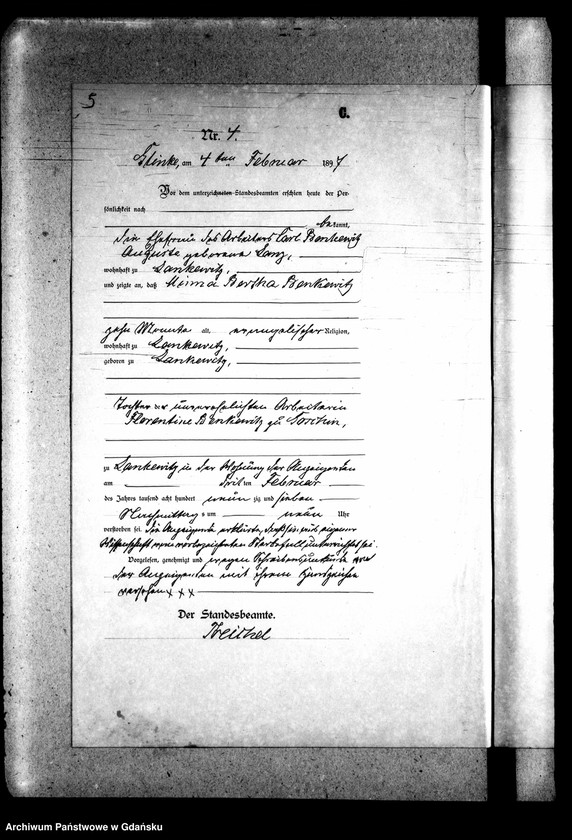 5
C.
Nr. 4.
am 4ten Februar 1897
Vor dem unterzeichneten Standesbeamten erschien heute der Per-
sönlichkeit nach
bekannt,
die Ehefrau des Arbeiters Carl Benkewitz
Auguste geborene Lanz,
wohnhaft zu Lankewitz,
und zeigte an, daß Minna Bertha Benkewitz
zehn Monate alt, evangelischer Religion,
wohnhaft zu Lankewitz,
geboren zu Lankewitz,
Tochter der unverehelichten Arbeiterin
Florentine Benkewitz zu
zu Lankewitz in der Wohnung der Anzeigenden
am dritten Februar
des Jahres tausend acht hundert neunzig und sieben
Nachmittags um neun Uhr
verstorben sei. Die Anzeigende erklärte, daß sie aus eigener
Wissenschaft von vorbezeichneten Sterbefall unterrichtet sei.
Vorgelesen, genehmigt und wegen Schreibensunkunde von
der Anzeigenden mit ihrem Handzeichen
versehen x x x
Der Standesbeamte.
Archiwum Państwowe w Gdańsku